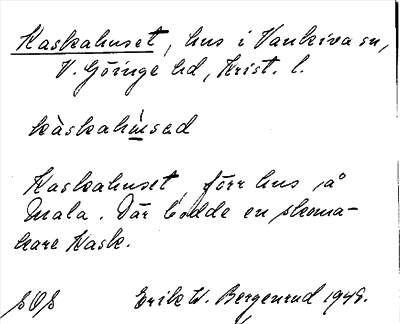 Kaskahuset, hus i Vankiva sn,
V. Göinge hd, Krist. l.
kàskahùsəd
Kaskahuset, förr hus på
Mala. Där bodde en skoma-
kare Kask.
SOS Erik W. Bergenrud 1949.